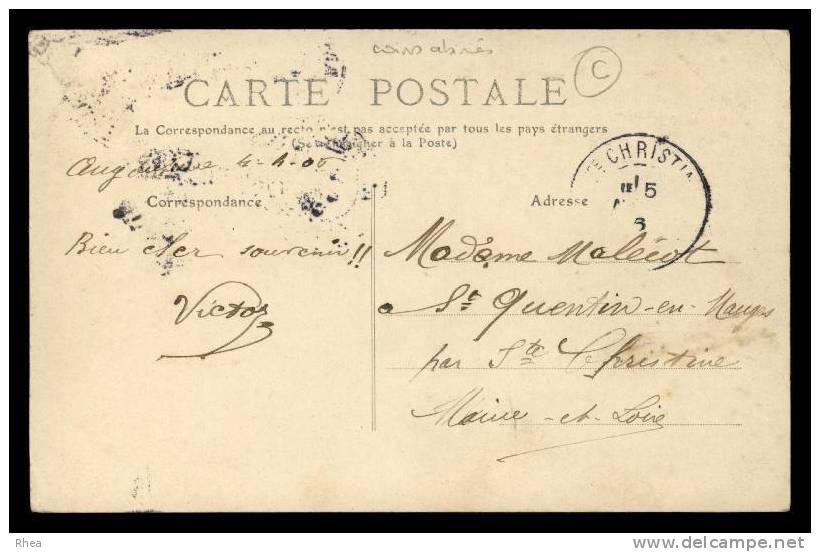 coins abimés
C
CARTE POSTALE
La Correspondance au recto n'est pas acceptée par tous les pays étrangers
(Se renseigner à la Poste)
4-4-06
Correspondance
Adresse
TE CHRISTIN
5
6
Bien cher souvenir!!
Victor
Madame Malécot
à St Quentin-en-Mauges
par Ste Christine
Maine-et-Loire
Rhea
www.delcampe.net